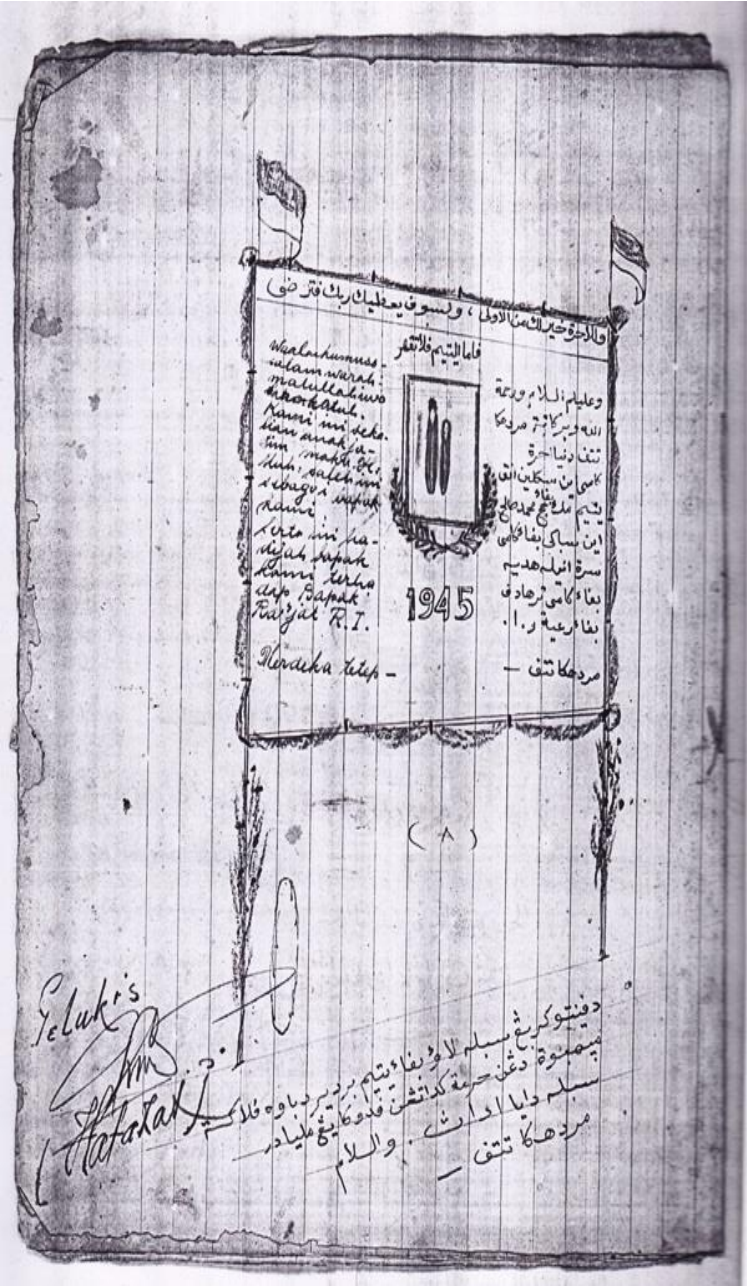 والاخرة خير لك من الاولى ، ولسوف يعطيك ربك فترضى
فاما اليتيم فلا تقهر
Waalaikumuss-
salam warah-
matullahi wo
Kami ini seka-
lian anak ja-
tim
saleh ini
sebagai bapak
kami
serta ini ha-
dijah bapak
kami terha
dap Bapak
Ra'jat R.I.
Merdeka tetep -
1945
وعليكم السلام ورحمة
الله وبركاته مردهكا
تتف دنيا اخرة
كامي ين سكلين انق
يتيم محمد صالح
اين سباكى بفا كامى
سرة اينله هديه
بفاء كامى ترهادف
بفاء رعية ر.ا.
مردهكا تتف —
( ٨ )
Pelukis
دفنتو كريغ سبله لاؤ بفاء يتيم برديري دباوه
مپمبوة دغن حرمة كداتغن فدوكا يغ مليا در
سبله دايا . والسلام
مردهكا تتف —